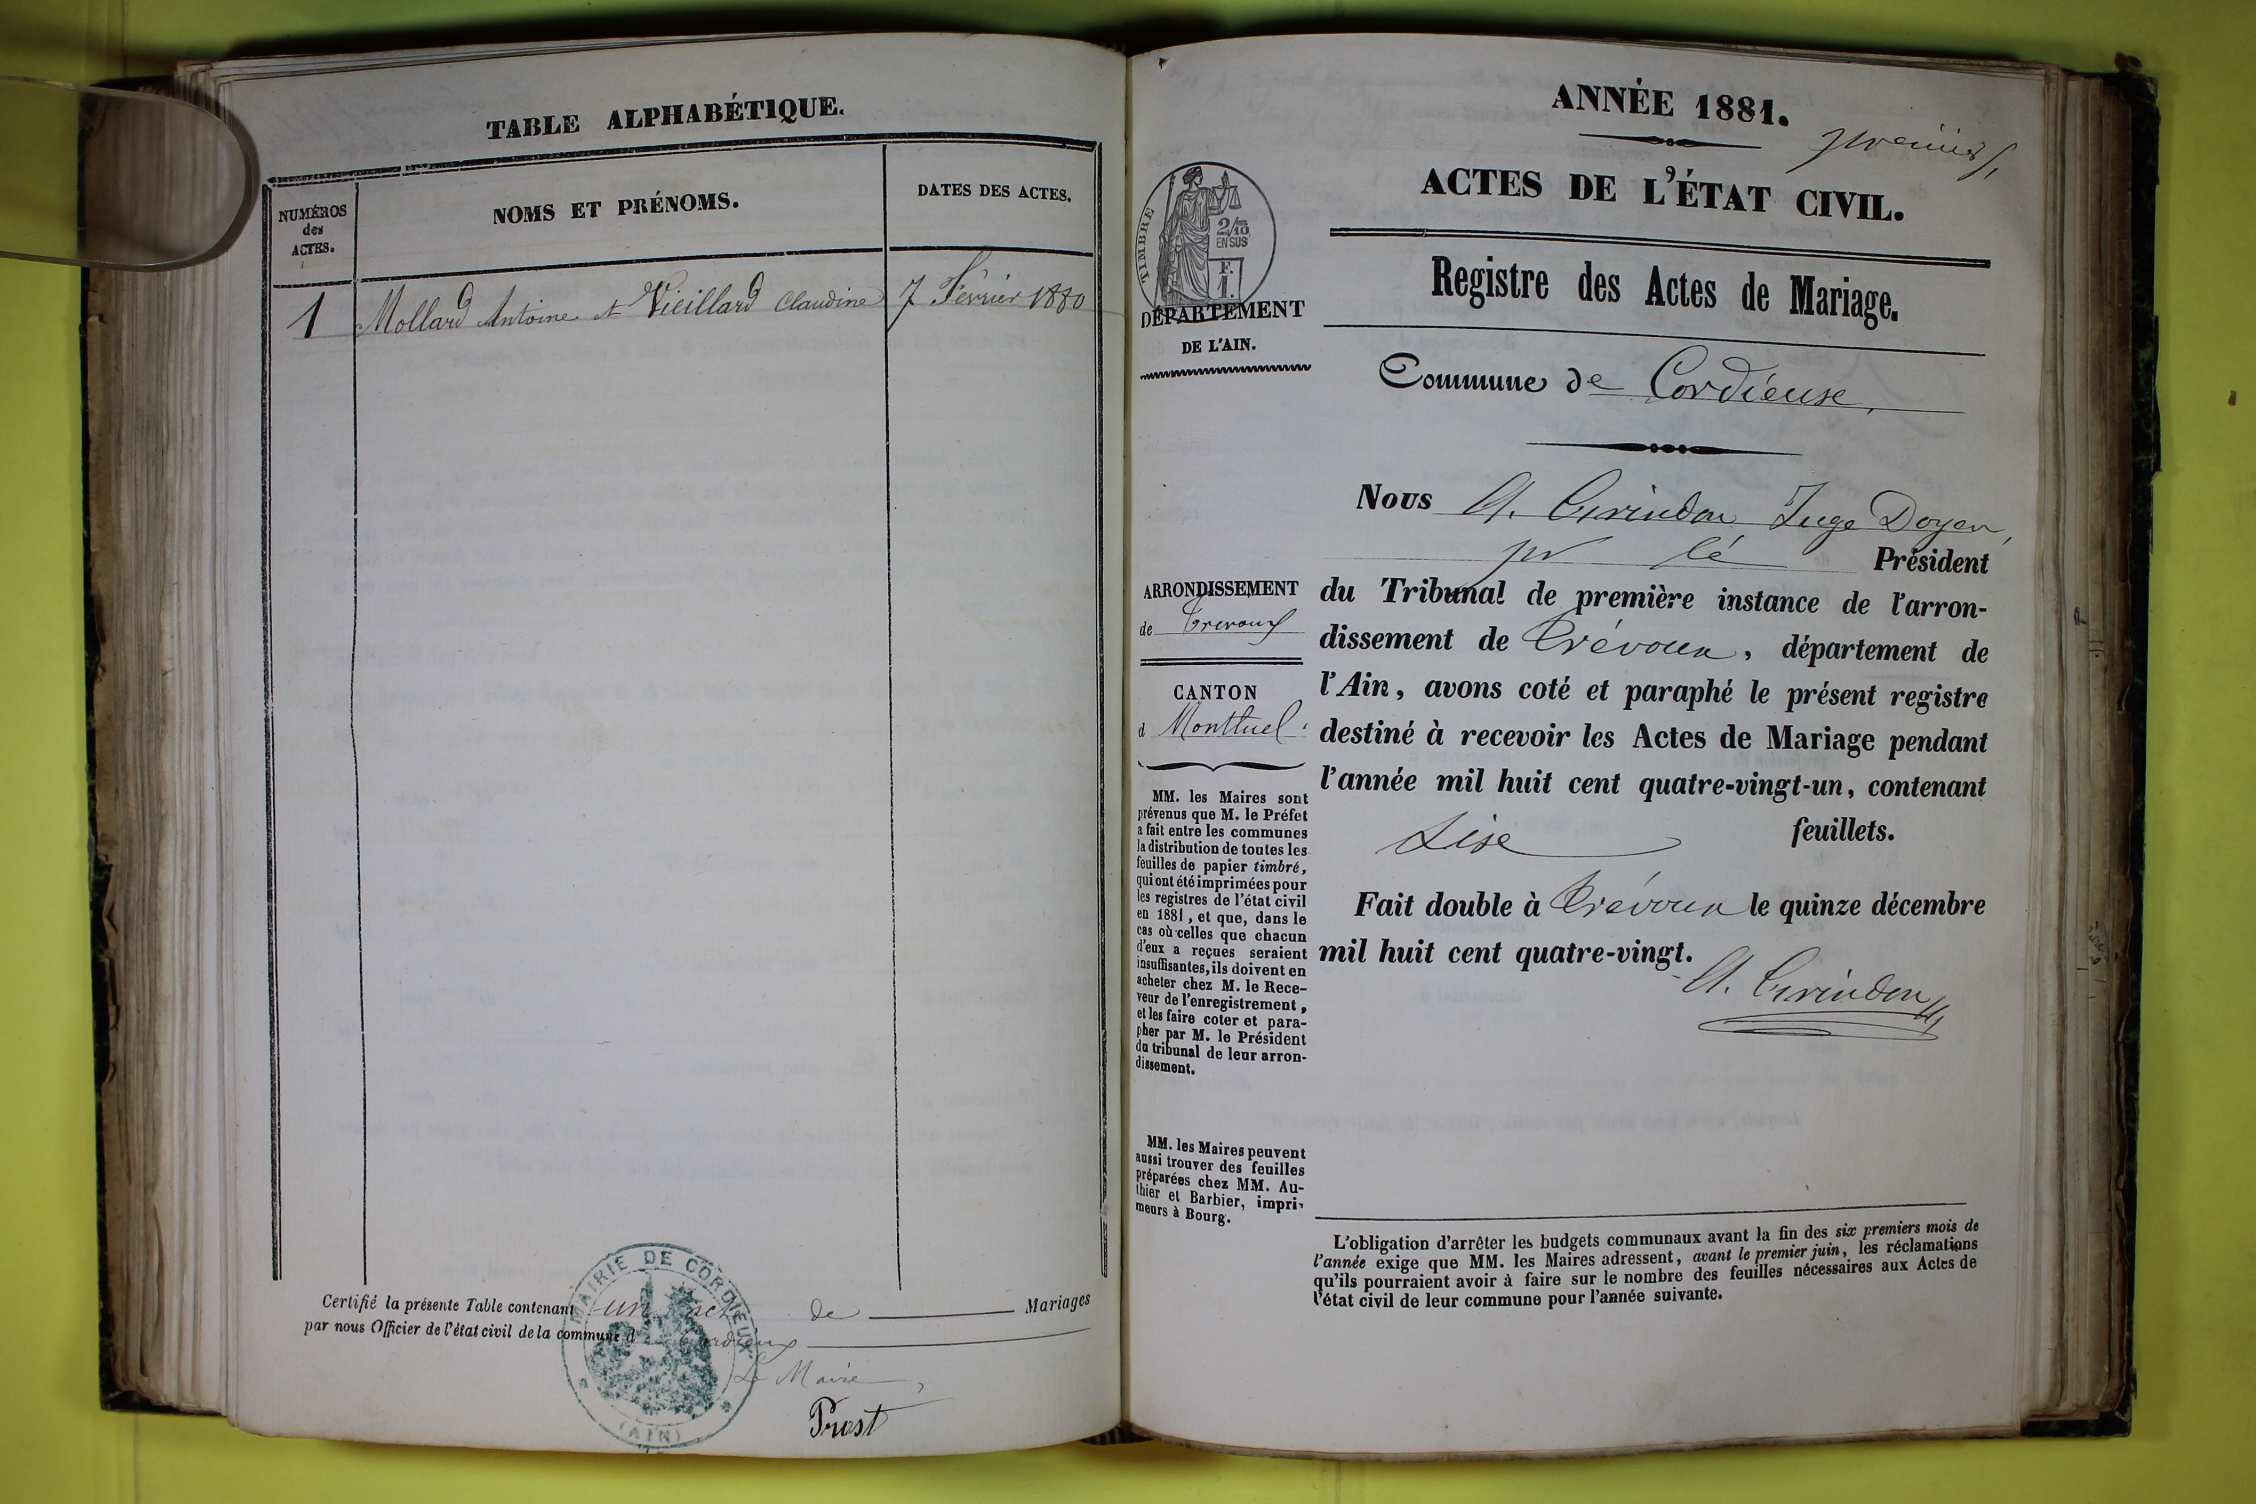 TABLE ALPHABÉTIQUE.
NUMÉROS
des
ACTES.
NOMS ET PRÉNOMS.
DATES DES ACTES.
1 Mollard Antoine et Vieillard Claudine 7 Février 1880
Certifié la présente Table contenant un acte de Mariages
par nous Officier de l'état civil de la commune de Cordieux
Le Maire,
Prost
MAIRIE DE CORDIEUX
(AIN)
ANNÉE 1881.
premier
ACTES DE L'ÉTAT CIVIL.
TIMBRE
2/10
EN SUS
F.
1.
DÉPARTEMENT
DE L'AIN.
Registre des Actes de Mariage.
Commune de Cordieuse,
ARRONDISSEMENT
de Trevoux
CANTON
d Montluel.
MM. les Maires sont
prévenus que M. le Préfet
a fait entre les communes
la distribution de toutes les
feuilles de papier timbré,
qui ont été imprimées pour
les registres de l'état civil
en 1881, et que, dans le
cas où celles que chacun
d'eux a reçues seraient
insuffisantes, ils doivent en
acheter chez M. le Rece-
veur de l'enregistrement,
et les faire coter et para-
pher par M. le Président
du tribunal de leur arron-
dissement.
MM. les Maires peuvent
aussi trouver des feuilles
préparées chez MM. Au-
thier et Barbier, impri-
meurs à Bourg.
Nous A. Juge Doyen,
pr le Président
du Tribunal de première instance de l'arron-
dissement de Trévoux, département de
l'Ain, avons coté et paraphé le présent registre
destiné à recevoir les Actes de Mariage pendant
l'année mil huit cent quatre-vingt-un, contenant
feuillets.
Fait double à Trévoux le quinze décembre
mil huit cent quatre-vingt.
L'obligation d'arrêter les budgets communaux avant la fin des six premiers mois de
l'année exige que MM. les Maires adressent, avant le premier juin, les réclamations
qu'ils pourraient avoir à faire sur le nombre des feuilles nécessaires aux Actes de
l'état civil de leur commune pour l'année suivante.